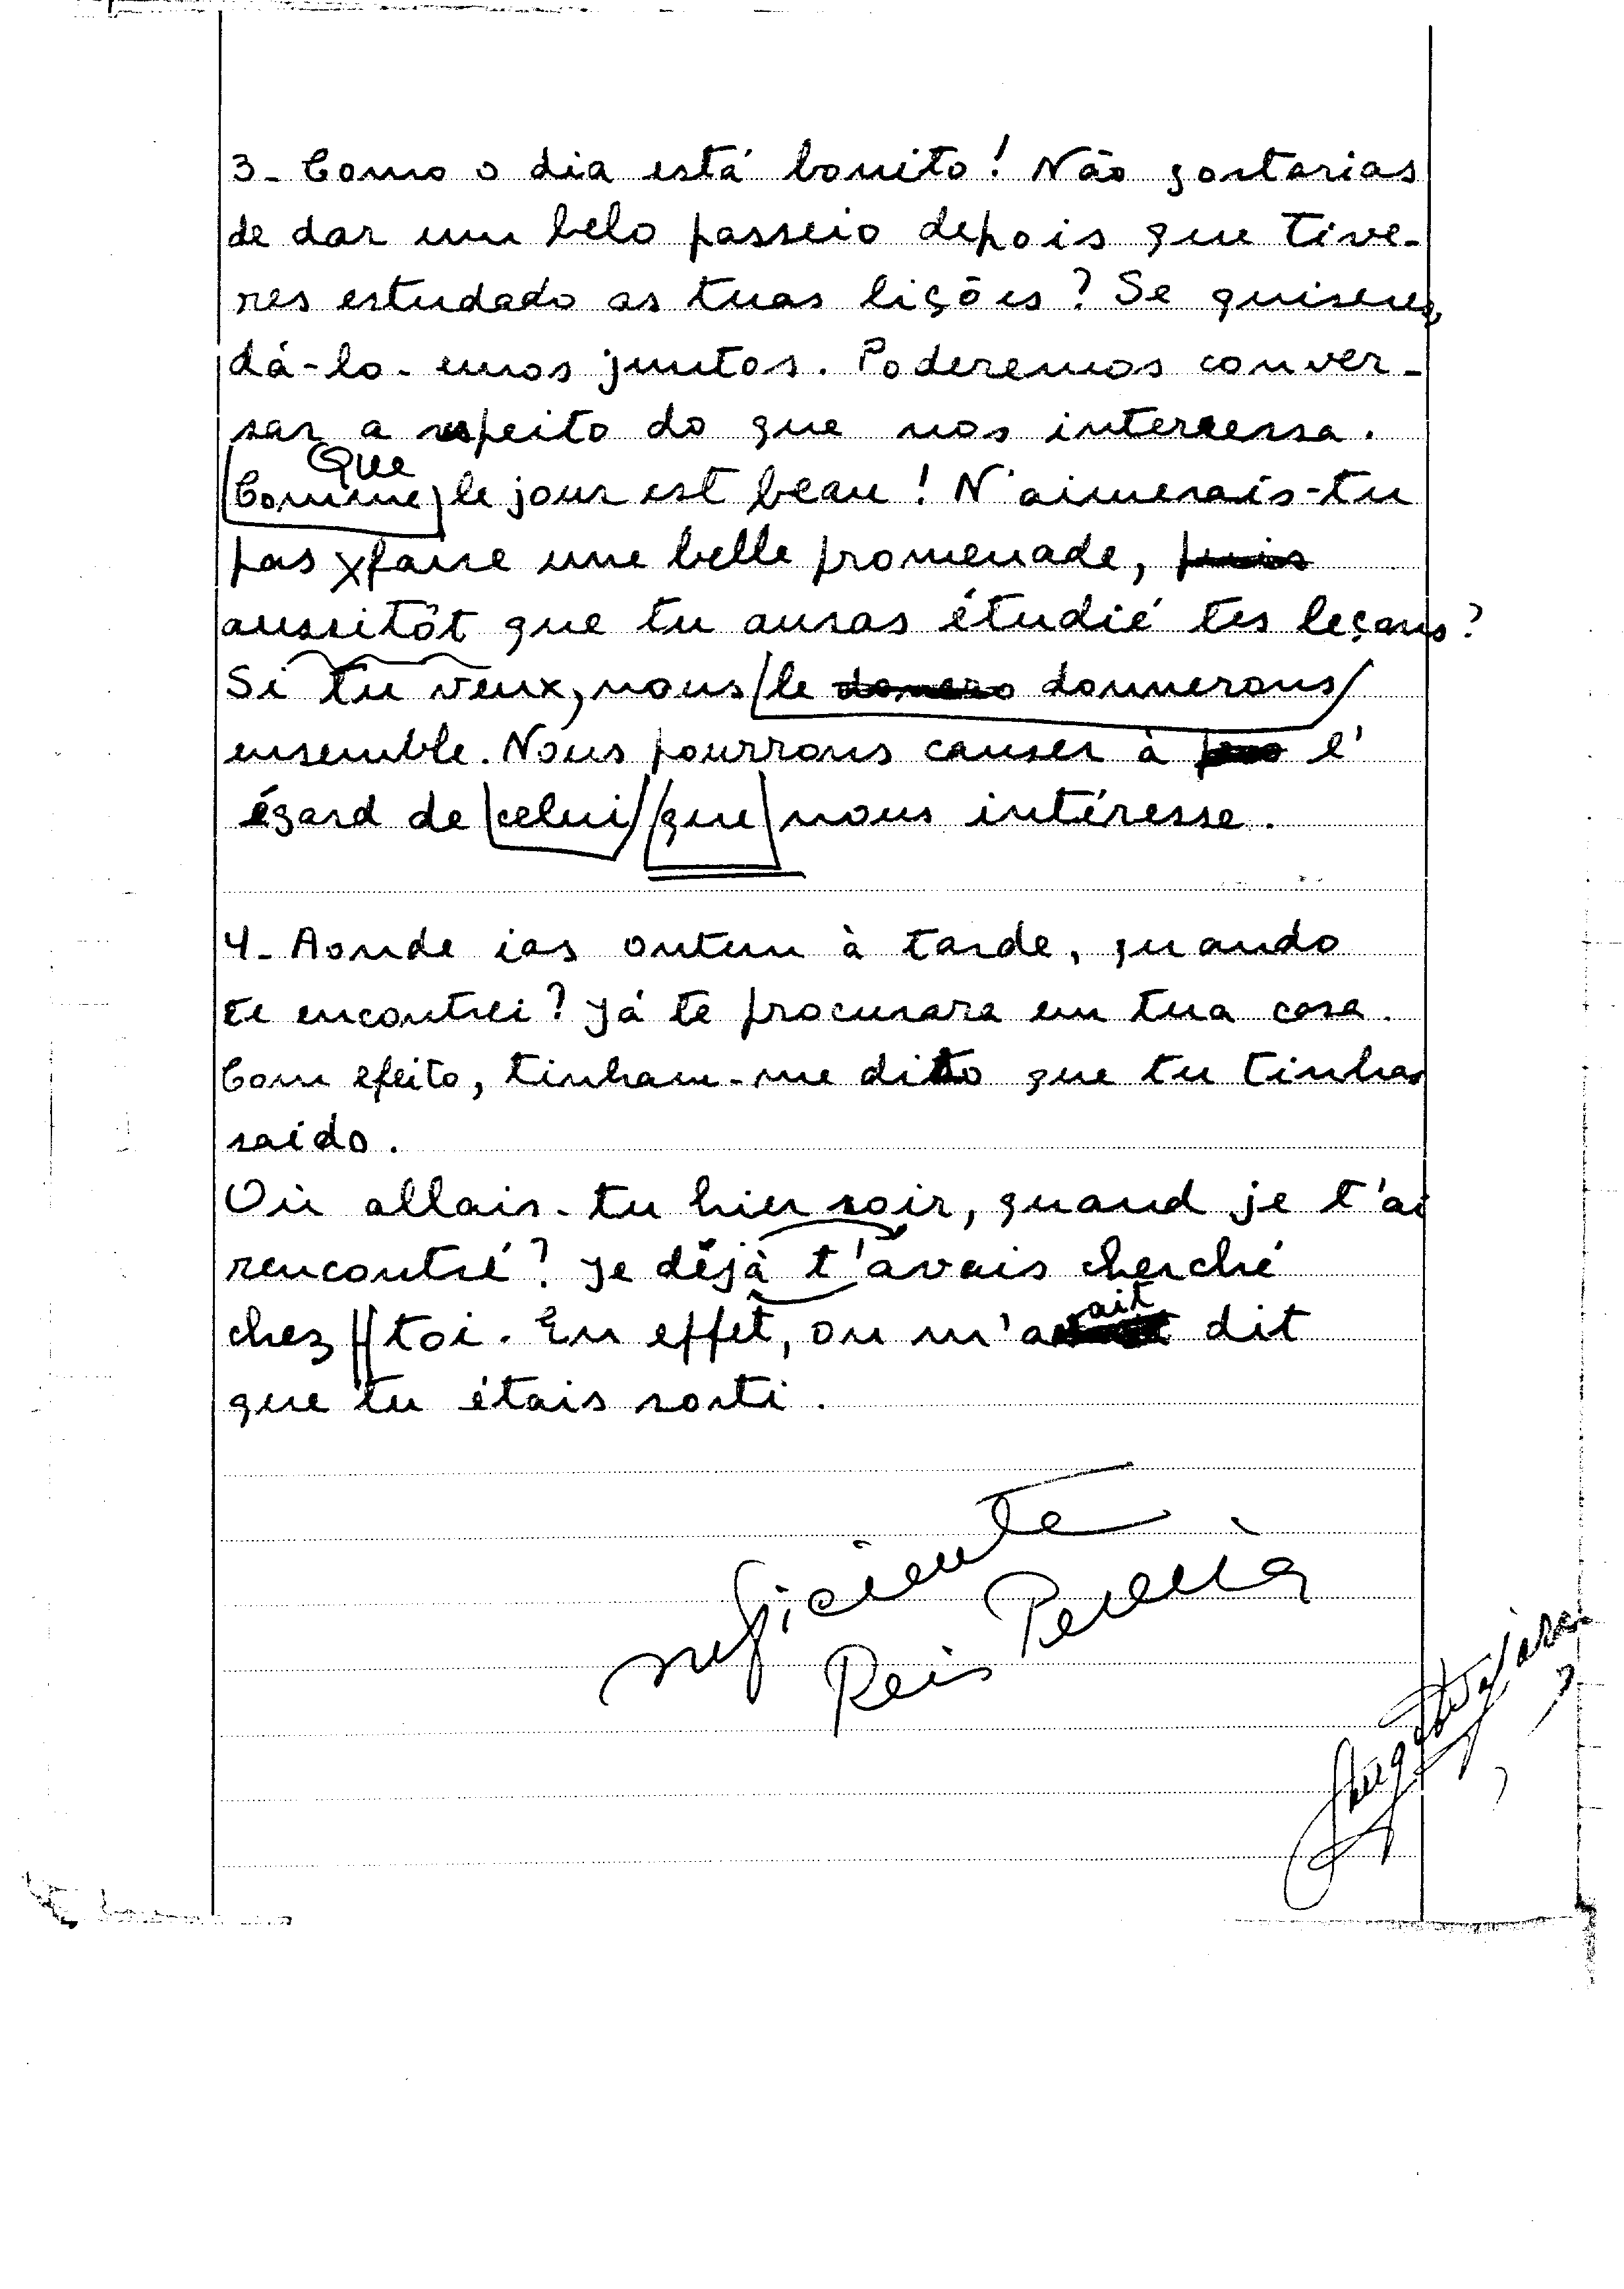 3- Como o dia está bonito! Não gostarias
de dar um belo passeio depois que tive-
res estudado as tuas lições? Se quiseres,
dá-lo-emos juntos. Poderemos conver-
sar a respeito do que nos interessa.
Que
Comme le jour est beau! N'aimerais-tu
pas faire une belle promenade, puis
aussitôt que tu auras étudié tes leçons?
Si tu veux, nous le donnerons
ensemble. Nous pourrons causer à l'
égard de celui que nous intéresse.
4- Aonde ias ontem à tarde, quando
te encontrei? Já te procurara em tua casa.
Com efeito, tinham-me dito que tu tinhas
saído.
Où allais-tu hier soir, quand je t'ai
rencontré? Je déjà t'avais cherché
chez toi. En effet, on m'avait dit
que tu étais sorti.
suficiente
Reis Pereira